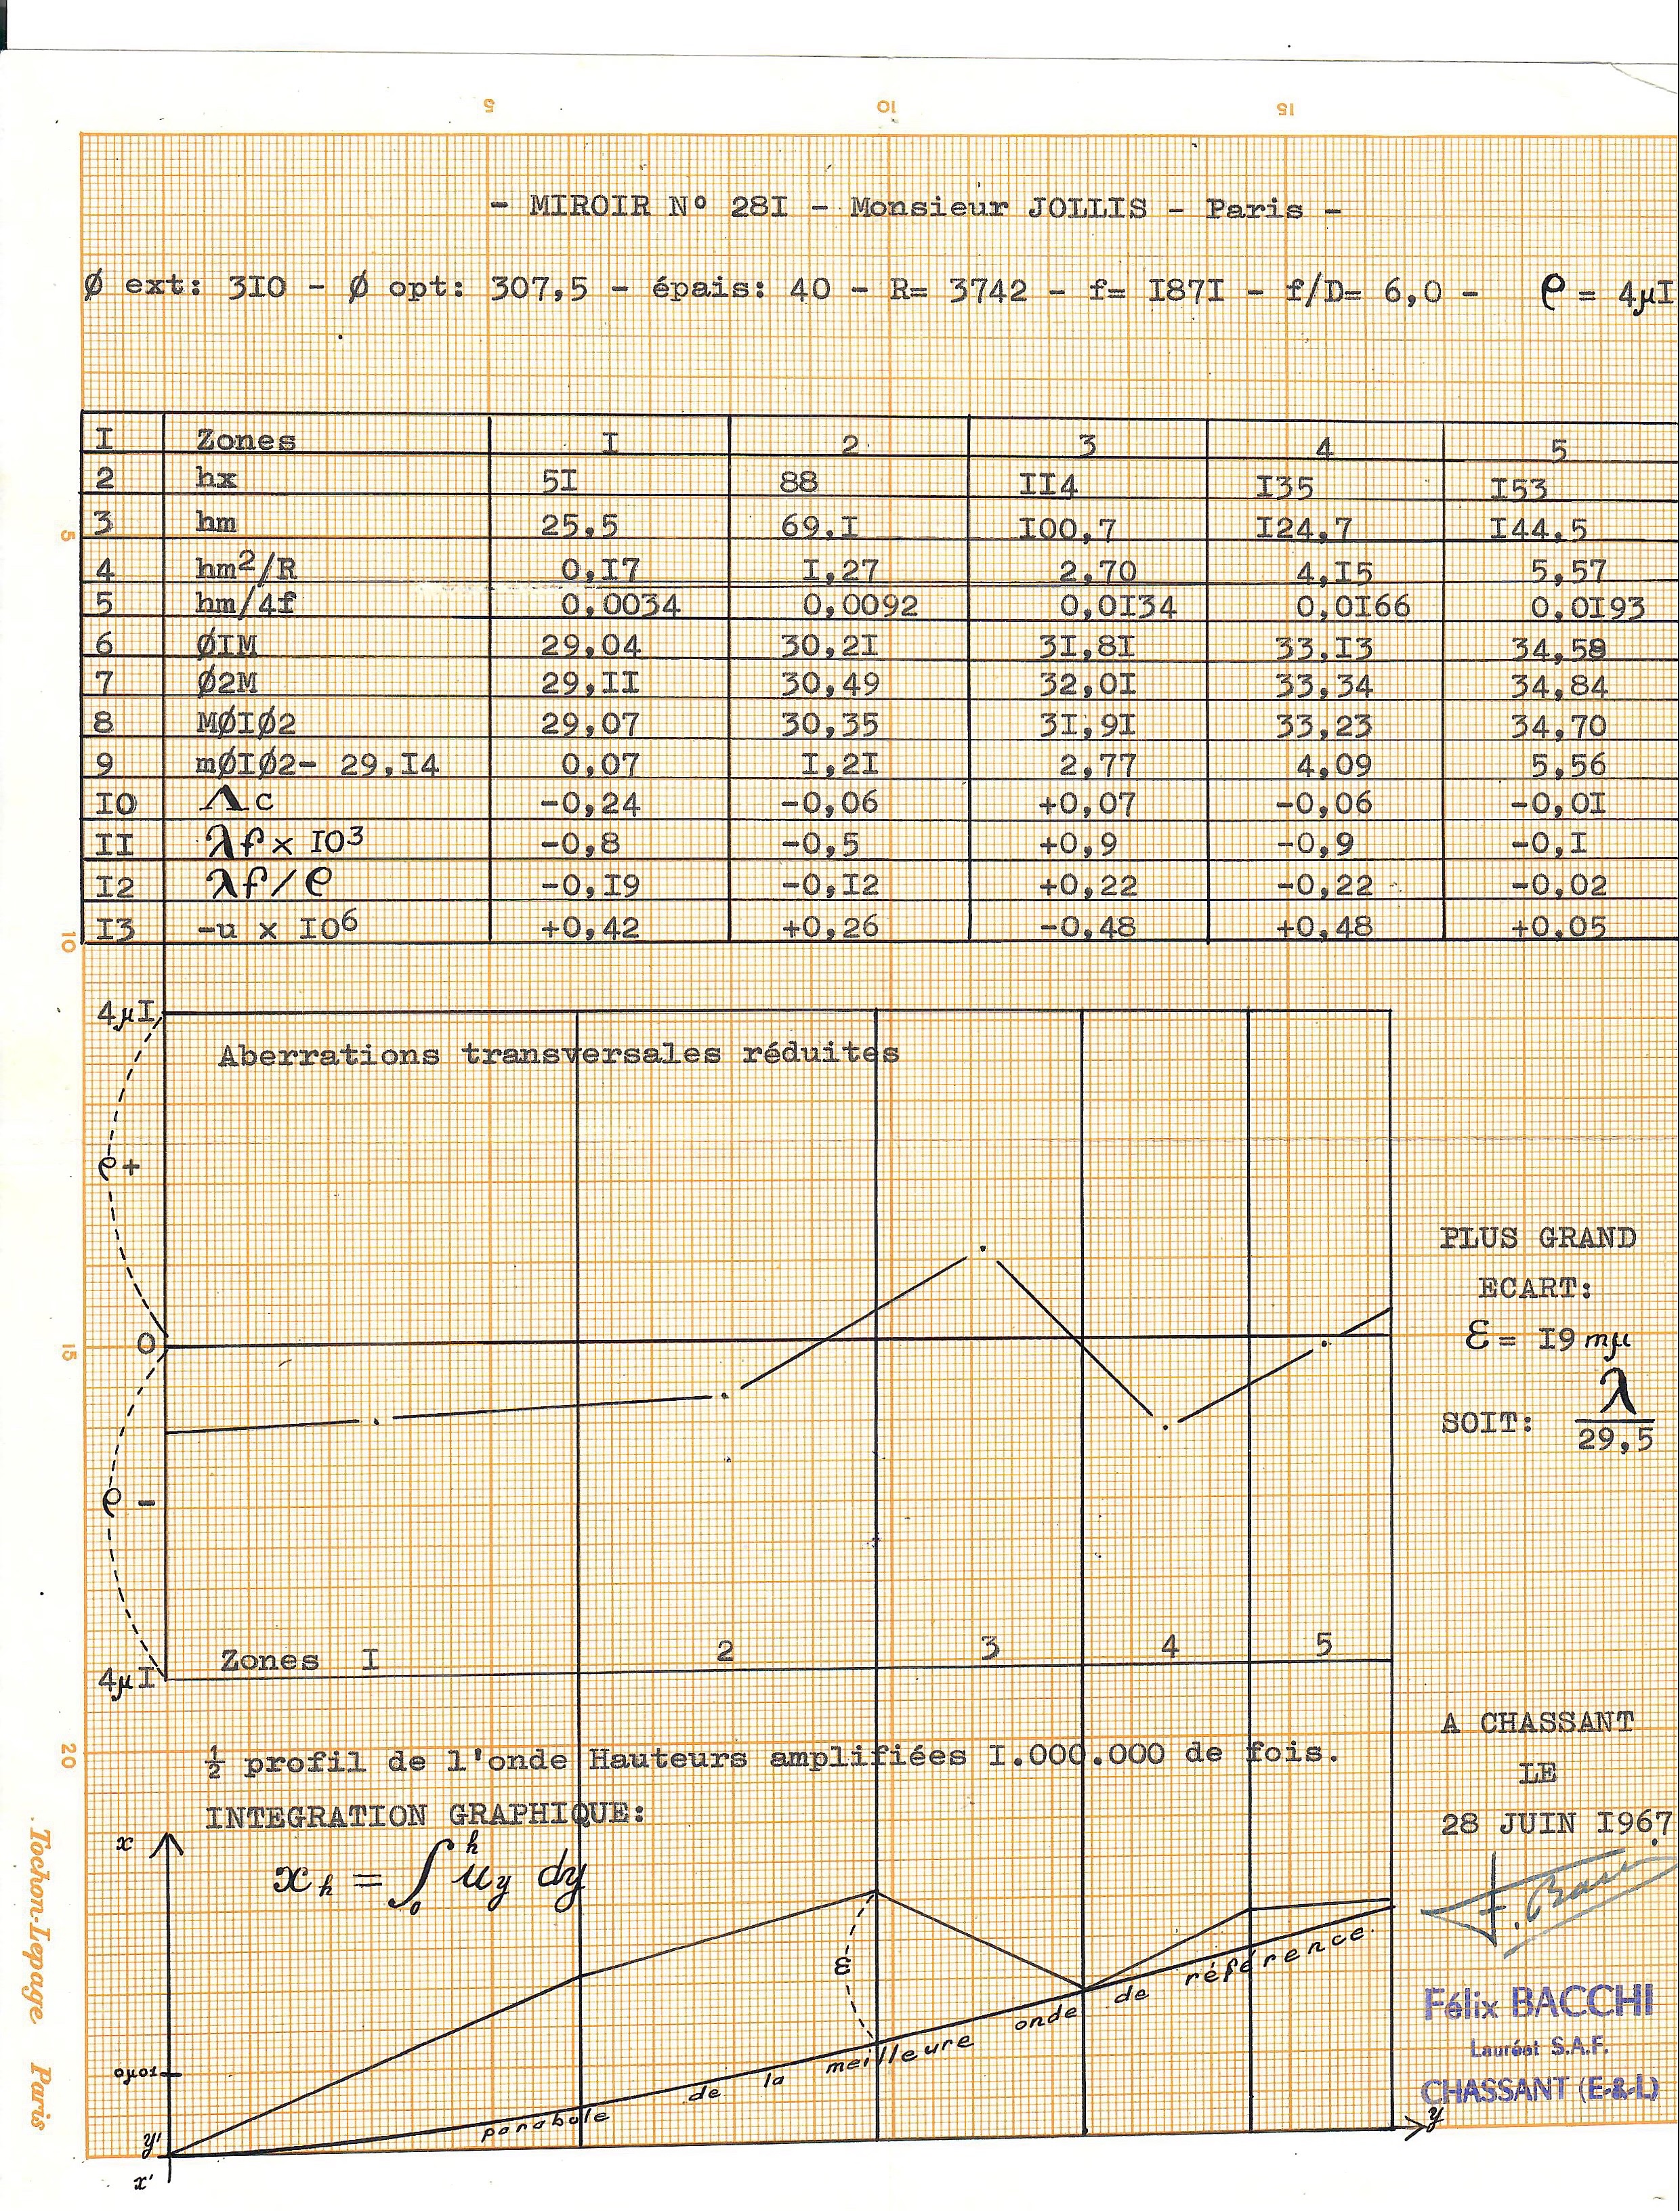 5 10 15
- MIROIR Nº 28I - Monsieur JOLLIS - Paris -
Ø ext: 3I0 - Ø opt: 307,5 - épais: 40 - R= 3742 - f= I87I - f/D= 6,0 - ρ = 4µI
I Zones I 2 3 4 5
2 hx 5I 88 II4 I35 I53
3 hm 25,5 69.I I00,7 I24,7 I44,5
4 hm²/R 0,I7 I,27 2,70 4,I5 5,57
5 hm/4f 0,0034 0,0092 0,0I34 0,0I66 0,0I93
6 ØIM 29,04 30,2I 3I,8I 33,I3 34,58
7 Ø2M 29,II 30,49 32,0I 33,34 34,84
8 MØIØ2 29,07 30,35 3I,9I 33,23 34,70
9 mØIØ2- 29,I4 0,07 I,2I 2,77 4,09 5,56
I0 Λc -0,24 -0,06 +0,07 -0,06 -0,0I
II λf x I0³ -0,8 -0,5 +0,9 -0,9 -0,I
I2 λf/ρ -0,I9 -0,I2 +0,22 -0,22 -0,02
I3 -u x I0⁶ +0,42 +0,26 -0,48 +0,48 +0,05
5
10
15
20
4µI
Aberrations transversales réduites
ρ+
0
ρ -
4µI
Zones I 2 3 4 5
PLUS GRAND
ECART:
ε = I9 mµ
SOIT: λ/29,5
½ profil de l'onde Hauteurs amplifiées I.000.000 de fois.
INTEGRATION GRAPHIQUE:
x
xₕ = ∫₀ʰ u_y dy
ε
0µ01
y'
x'
y
parabole de la meilleure onde de référence.
A CHASSANT
LE
28 JUIN I967
Félix BACCHI
Lauréat S.A.F.
CHASSANT (E-&-L)
Tochon-Lepage Paris